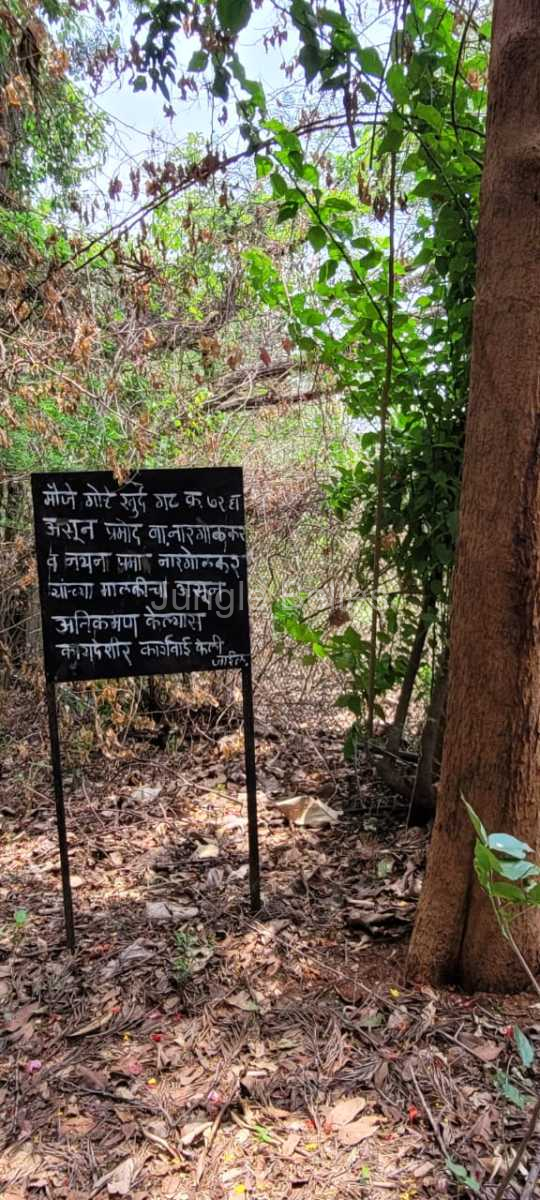 मौजे गोऱ्हे खुर्द गट क्र. ७२ हा
असून प्रमोद वा. नारगोळकर
व नयना प्रमो नारगोळकर
यांच्या मालकीचा असून
अतिक्रमण केल्यास
कायदेशीर कारवाई केली
जाईल.
Jungle